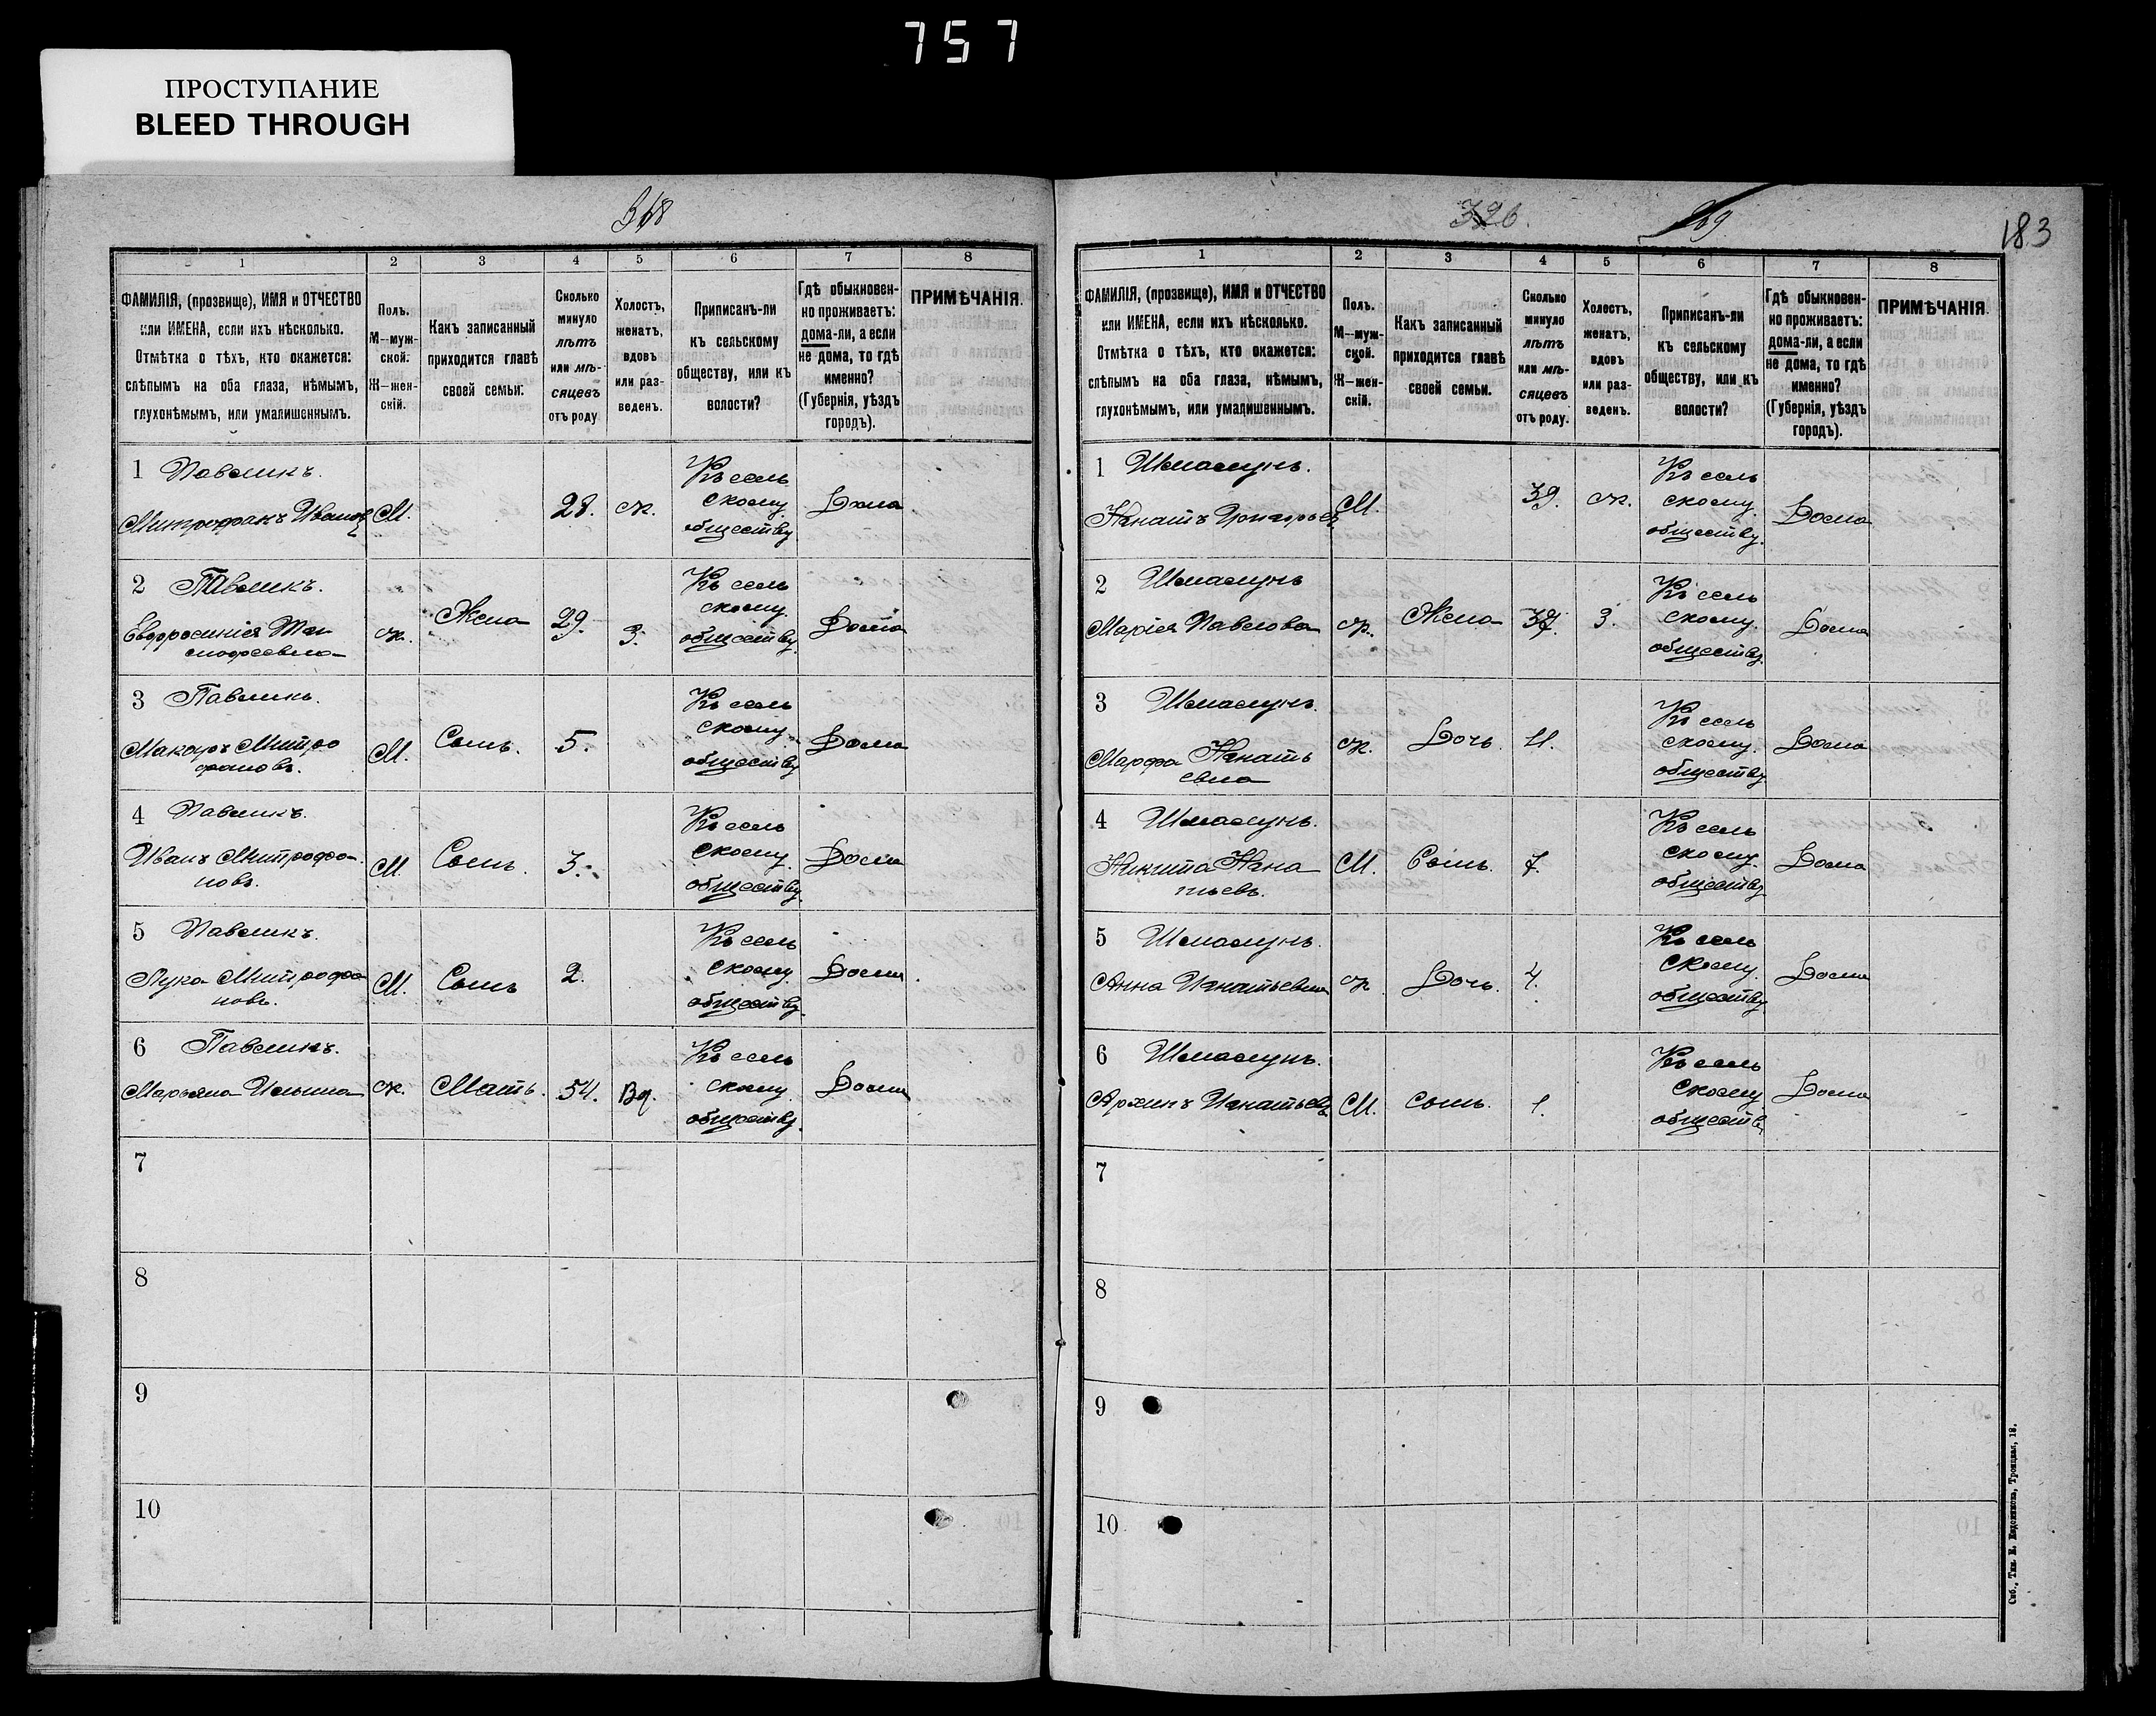 757
ПРОСТУПАНИЕ
BLEED THROUGH
1 2 3 4 5 6 7 8
ФАМИЛІЯ, (прозвище), ИМЯ и ОТЧЕСТВО
или ИМЕНА, если ихъ нѣсколько.
Отмѣтка о тѣхъ, кто окажется:
слѣпымъ на оба глаза, нѣмымъ,
глухонѣмымъ, или умалишеннымъ.
Полъ.
М—муж-
ской.
Ж—жен-
скій.
Какъ записанный
приходится главѣ
своей семьи.
Сколько
минуло
лѣтъ
или мѣ-
сяцевъ
отъ роду
Холостъ,
женатъ,
вдовъ
или раз-
веденъ.
Приписанъ-ли
къ сельскому
обществу, или къ
волости?
Гдѣ обыкновен-
но проживаетъ:
дома-ли, а если
не дома, то гдѣ
именно?
(Губернія, уѣздъ
городъ).
ПРИМѢЧАНІЯ.
1 Павликъ.
Митрофанъ Ивановъ М. 28. ж. Къ сель
скому
обществу Дома
2 Павликъ.
Евфросинія
ж. Жена 29. З. Къ сель
скому
обществу Дома
3 Павликъ.
Макаръ Митро
фановъ. М. Сынъ. 5. Къ сель
скому
обществу Дома
4 Павликъ.
Иванъ Митрофа
новъ. М. Сынъ. 3. Къ сель
скому
обществу Дома
5 Павликъ.
Лука Митрофа
новъ. М. Сынъ 2. Къ сель
скому
обществу Дома
6 Павликъ.
Марьяна Ильина ж. Мать. 54. Вд. Къ сель
скому
обществу. Дома
7
8
9
10
326. 183
1 2 3 4 5 6 7 8
ФАМИЛІЯ, (прозвище), ИМЯ и ОТЧЕСТВО
или ИМЕНА, если ихъ нѣсколько.
Отмѣтка о тѣхъ, кто окажется:
слѣпымъ на оба глаза, нѣмымъ,
глухонѣмымъ, или умалишеннымъ.
Полъ.
М—муж-
ской.
Ж—жен-
скій.
Какъ записанный
приходится главѣ
своей семьи.
Сколько
минуло
лѣтъ
или мѣ-
сяцевъ
отъ роду.
Холостъ,
женатъ,
вдовъ
или раз-
веденъ.
Приписанъ-ли
къ сельскому
обществу, или къ
волости?
Гдѣ обыкновен-
но проживаетъ:
дома-ли, а если
не дома, то гдѣ
именно?
(Губернія, уѣздъ
городъ).
ПРИМѢЧАНІЯ.
1
Григорьев М. 39. ж. Къ сель
скому
обществу. Дома
2
Марія Павлова ж. Жена З. Къ сель
скому
обществу. Дома
3
Марфа Игнать
евна ж. Дочь. 11. Къ сель
скому.
обществу Дома
4
Никита Игна
тьевъ. М. Сынъ. 7. Къ сель
скому.
обществу Дома
5
Анна Игнатьевна ж Дочь. 4. Къ сель
скому.
обществу Дома
6
Архипъ Игнатьевъ М. сынъ. 1. Къ сель
скому
обществу Дома
7
8
9
10